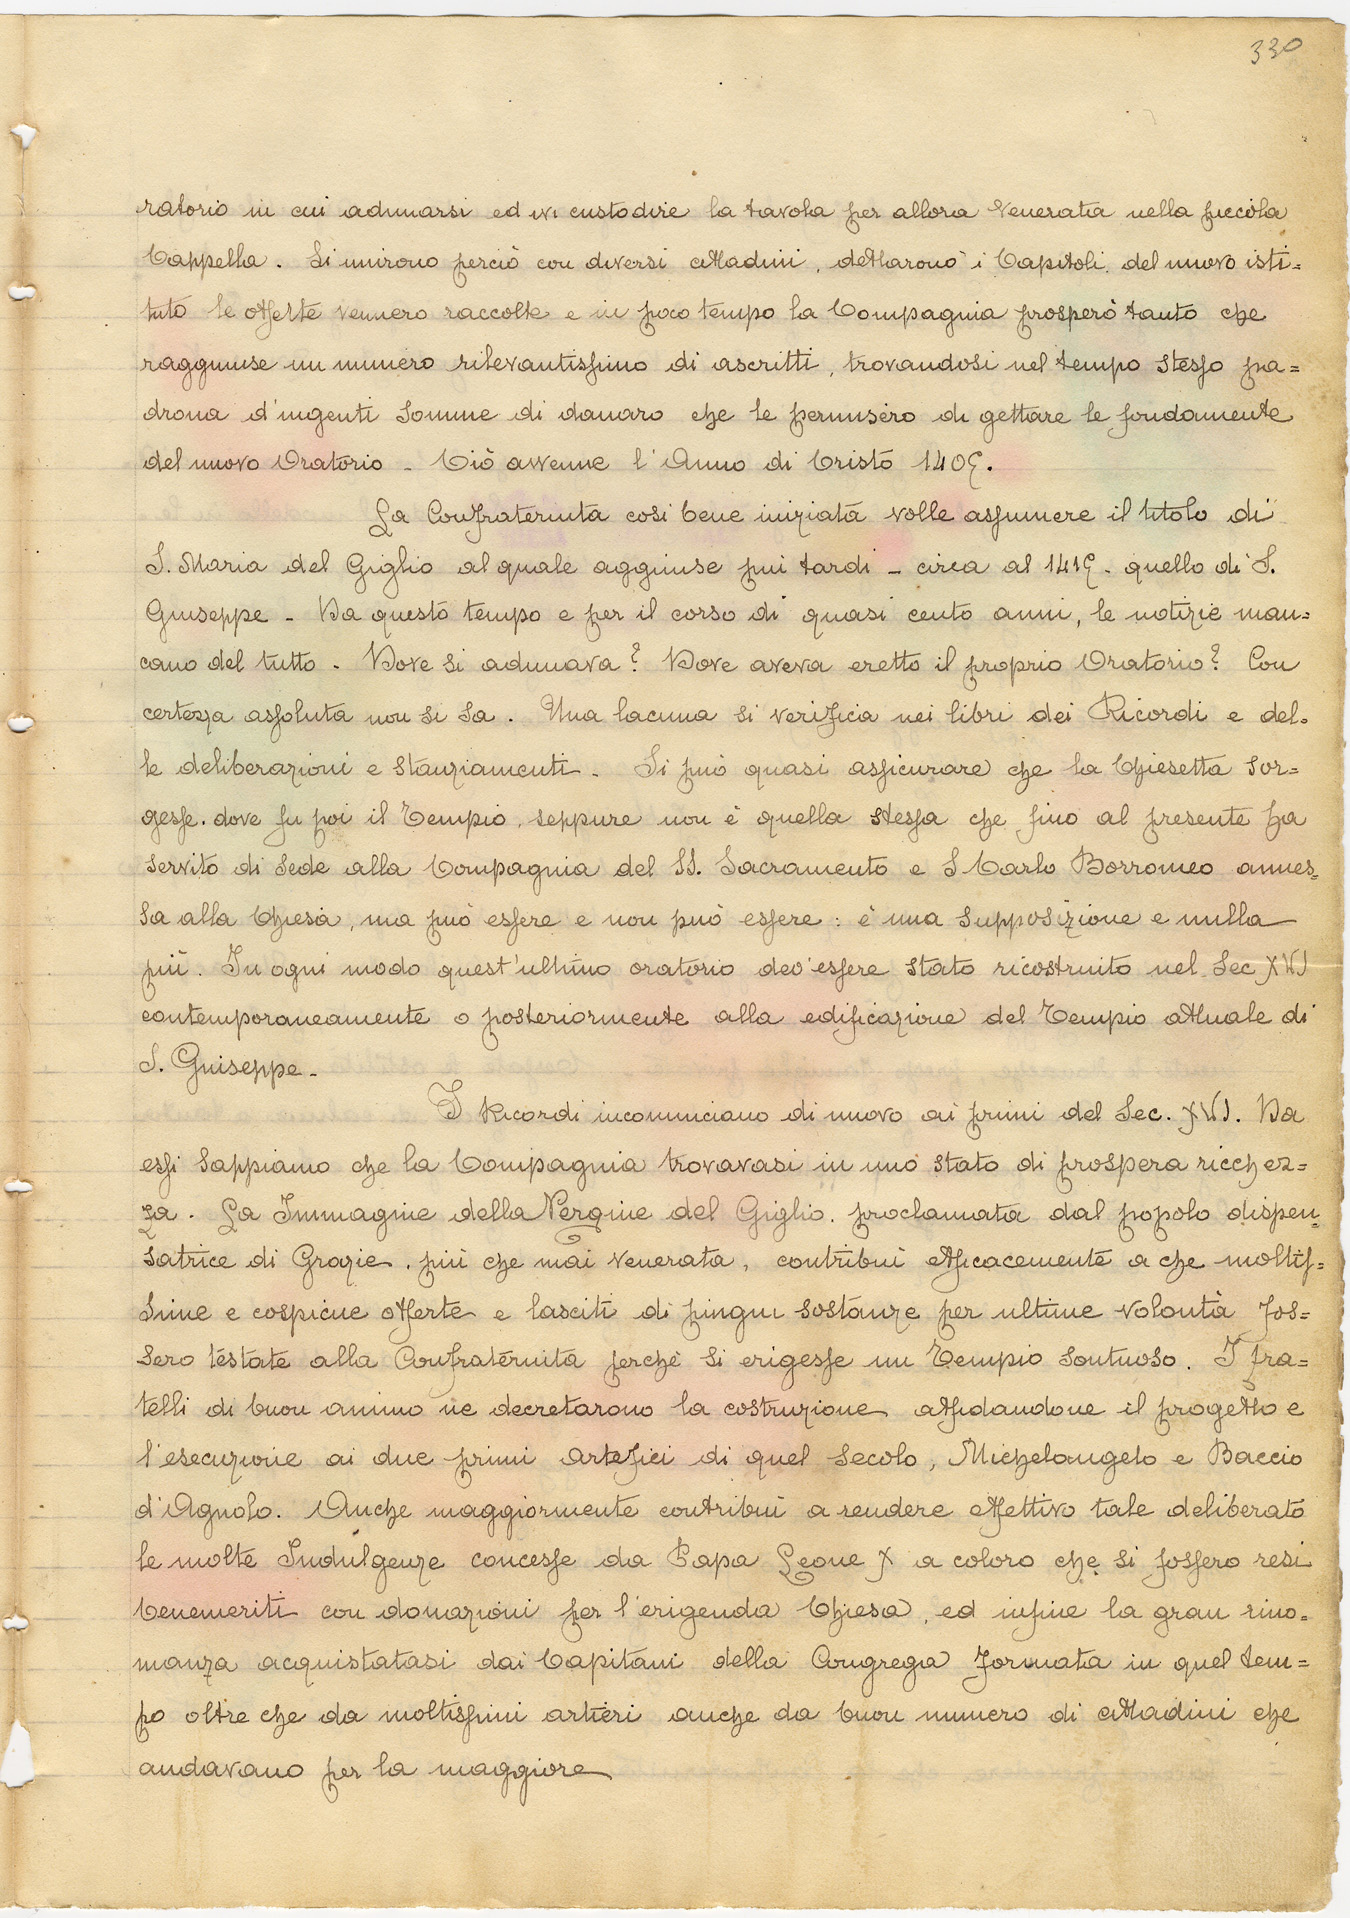 330
ratorio in cui adunarsi ed ivi custodire la tavola per allora venerata nella piccola
Cappella. Si unirono perciò con diversi cittadini, dettarono i Capitoli del nuovo isti=
tuto le offerte vennero raccolte e in poco tempo la Compagnia prosperò tanto che
raggiunse un numero rilevantissimo di ascritti, trovandosi nel tempo stesso pa=
drona d'ingenti somme di danaro che le permisero di gettare le fondamente
del nuovo Oratorio - Ciò avvenne l'Anno di Cristo 1405.
La Confraternita così bene iniziata volle assumere il titolo di
S. Maria del Giglio al quale aggiunse più tardi - circa al 1415 - quello di S.
Giuseppe - Da questo tempo e per il corso di quasi cento anni, le notizie man=
cano del tutto - Dove si adunava? Dove aveva eretto il proprio Oratorio? Con
certezza assoluta non si sa. Una lacuna si verifica nei libri dei Ricordi e del=
le deliberazioni e stanziamenti - Si può quasi assicurare che la Chiesetta sor=
gesse dove fu poi il Tempio, seppure non è quella stessa che fino al presente ha
servito di sede alla Compagnia del SS. Sacramento e S Carlo Borromeo annes=
sa alla Chiesa, ma può essere e non può essere: è una supposizione e nulla
più. In ogni modo quest'ultimo oratorio dev'essere stato ricostruito nel Sec XVI
contemporaneamente o posteriormente alla edificazione del Tempio attuale di
S. Guiseppe -
I Ricordi incominciano di nuovo ai primi del Sec. XVI. Da
essi sappiamo che la Compagnia trovavasi in uno stato di prospera ricchez=
za. La Immagine della Vergine del Giglio, proclamata dal popolo dispen=
satrice di Grazie, più che mai venerata, contribuì efficacemente a che moltis=
sime e cospicue offerte e lasciti di pingui sostanze per ultime volontà fos=
sero testate alla Confraternita perchè si erigesse un Tempio sontuoso. I fra=
telli di buon animo ne decretarono la costruzione affidandone il progetto e
l'esecuzione ai due primi artefici di quel secolo, Michelangelo e Baccio
d'Agnolo. Anche maggiormente contribuì a rendere effettivo tale deliberato
le molte Indulgenze concesse da Papa Leone X a coloro che si fossero resi
benemeriti con donazioni per l'erigenda Chiesa, ed infine la gran rino=
manza acquistatasi dai Capitani della Congrega formata in quel tem=
po oltre che da moltissimi artieri anche da buon numero di cittadini che
andavano per la maggiore